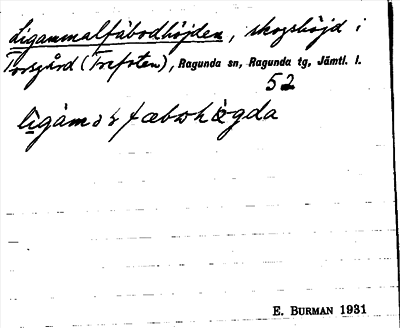 Ligammalfäbodhöjden, skogshöjd i
Torsgård (Trefoten), Ragunda sn, Ragunda tg, Jämtl. l.
52
E. BURMAN 1931